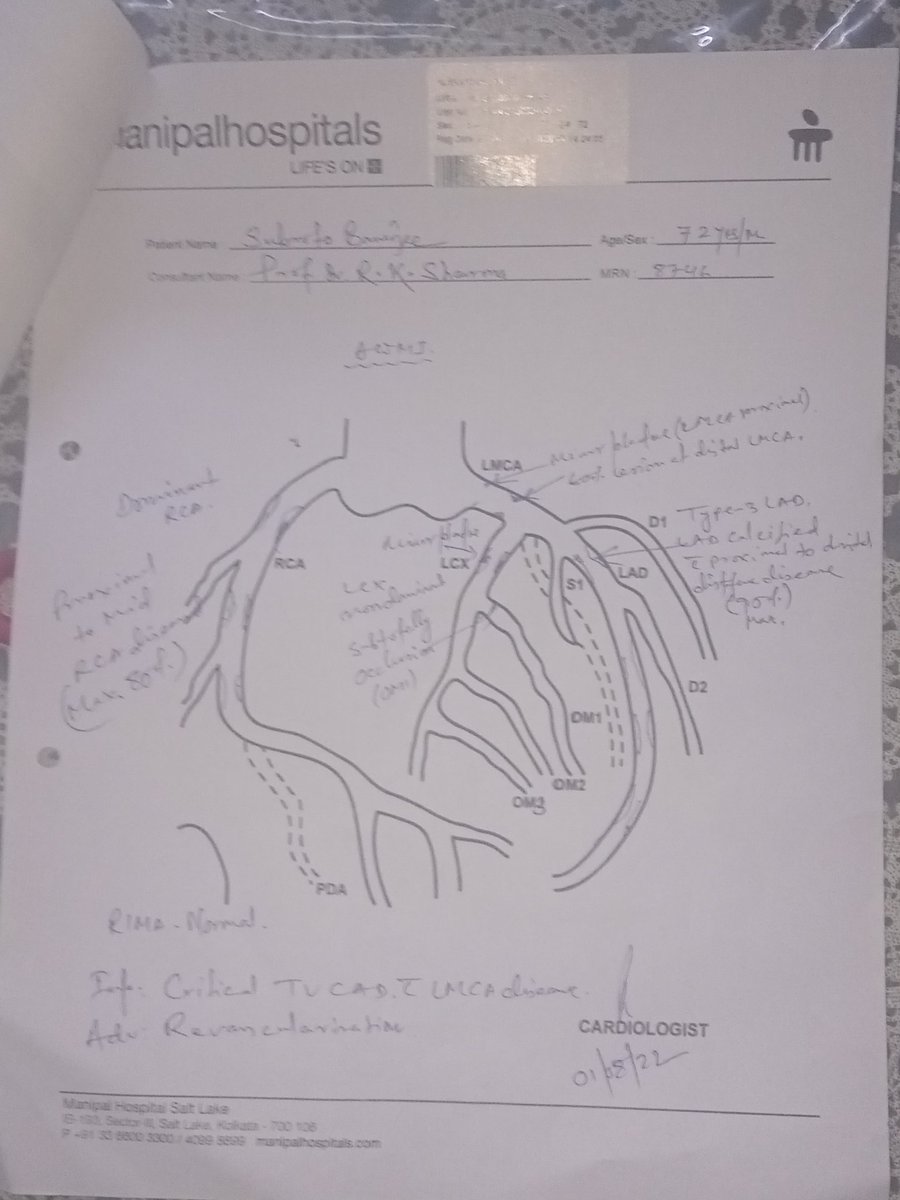 manipalhospitals
LIFE'S ON
Patient Name
Age/Sex : 72 yrs/M
Consultant Name Prof Dr. R. K. Sharma
MRN :
Minor plaque (LMCA proximal)
60% lesion at distal LMCA.
LMCA
Dominant
RCA.
D1
Type-3 LAD.
LAD calcified
c̄ proximal to distal
diffuse disease
(90%)
max.
Minor plaque
RCA
LCX
S1
LAD
Proximal
to mid
RCA disease
(Max. 80%)
LCX,
nondominant
Subtotally
occlusion
(OM1)
D2
OM1
OM2
OM3
PDA
RIMA - Normal.
Imp: Critical TVCAD. c̄ LMCA disease.
Adv: Revascularisation
CARDIOLOGIST
01/08/22
Manipal Hospital Salt Lake
Sector III, Salt Lake, Kolkata - 700 106
manipalhospitals.com